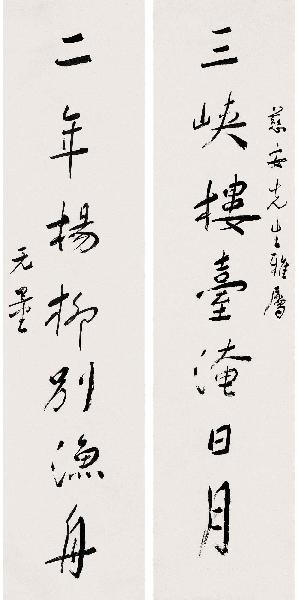 慈安先生雅屬
三峽樓臺淹日月
二年楊柳別漁舟
无量